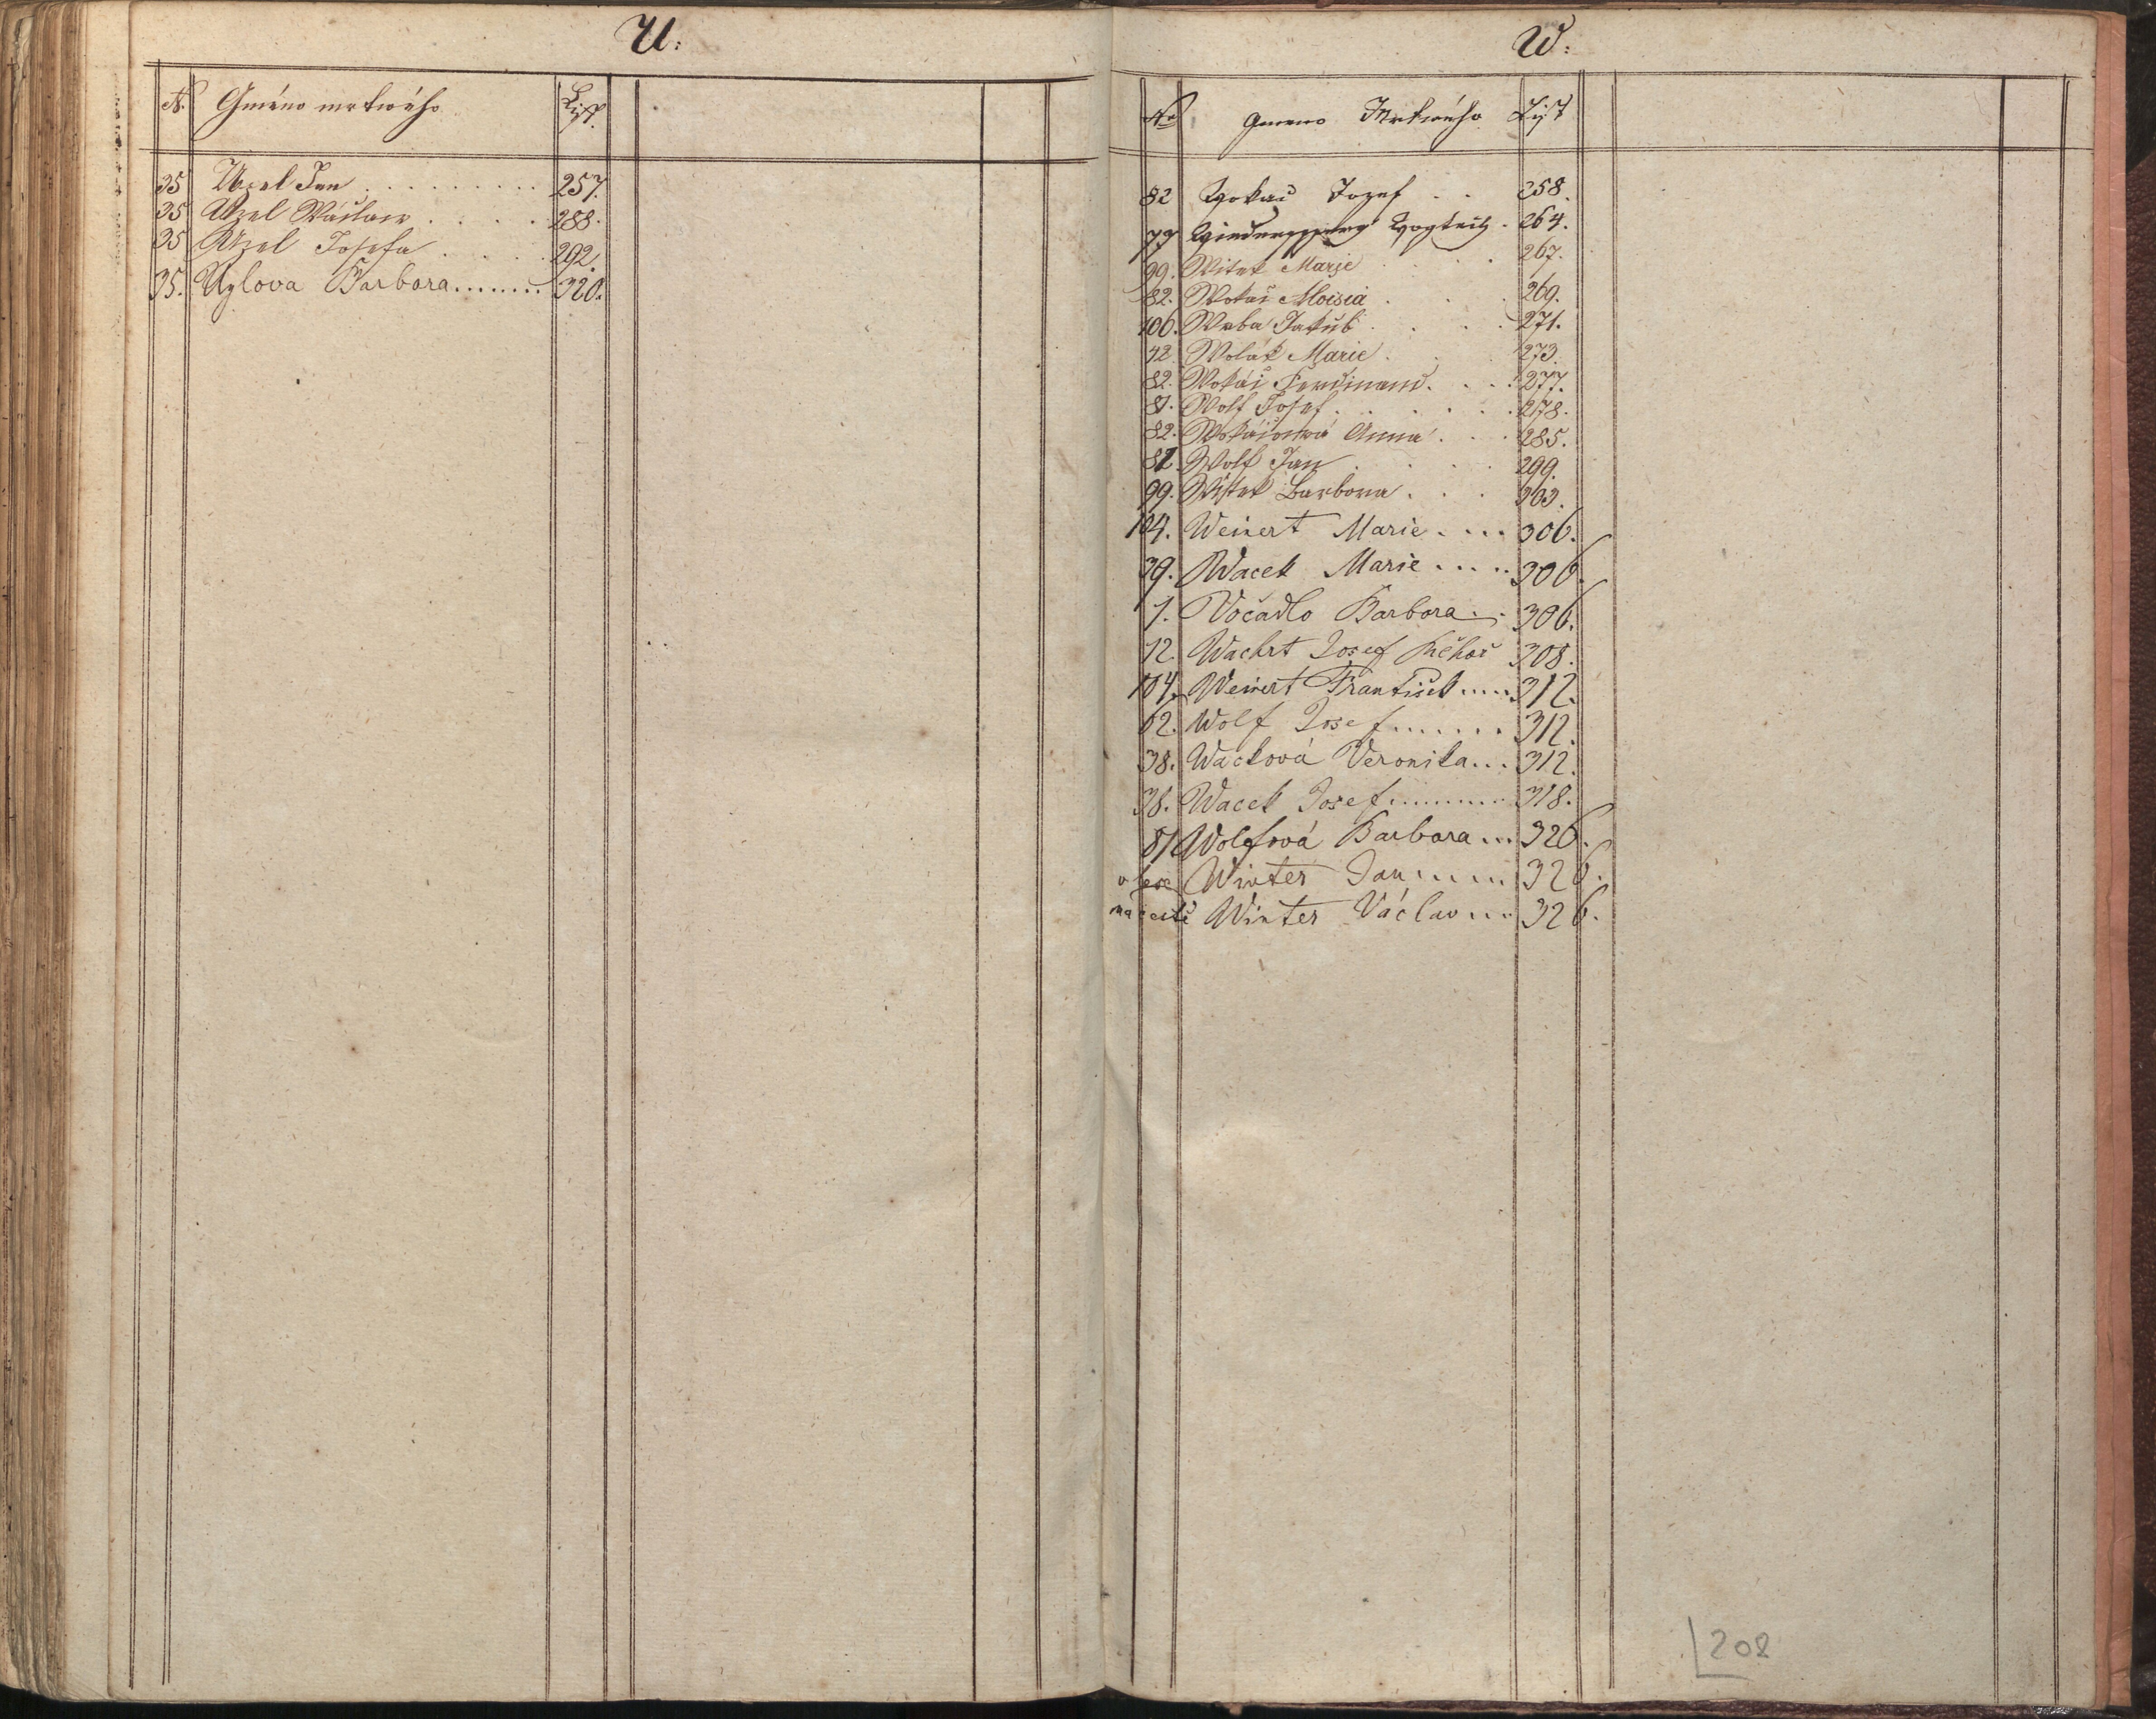 U:
N. Gméno mrtwého List.
35 Uzel Jan . . . . . . . . . 257.
35 Uzel Wáclaw . . . . 288.
35 Uzel Josefa . . . . 292.
35. Uzlova Barbora........ 320.
W:
No Gmeno Mrtwého List
82 Wokač Jozef . . 258.
77 Wogtěch . 264.
99. Witek Marje . . . . 267.
82. Wokač Aloisia . . . 269.
106. Wrba Jakub . . . . 271.
42. Wolák Marie . . . 273.
82. Wokáč Ferdinand. . . . 277.
81. Wolf Josef . . . . . . 278.
82. Wokáčowá Anna . . . 285.
81. Wolf Jan . . . . 299.
99. Witek Barbora . . . 303.
104. Weinert Marie . . . . 306.
39. Wacek Marie ..... 306.
1. Vočadlo Barbora . . 306.
12. Wachrt Josef Řehoř 308.
104. Weinert František..... 312.
62. Wolf Josef....... 312.
38. Wacková Veronika... 312.
38. Wacek Josef......... 318.
81 Wolfová Barbora ... 326.
v lese Winter Jan ...... 326.
na cestě Winter Václav ... 326.
208